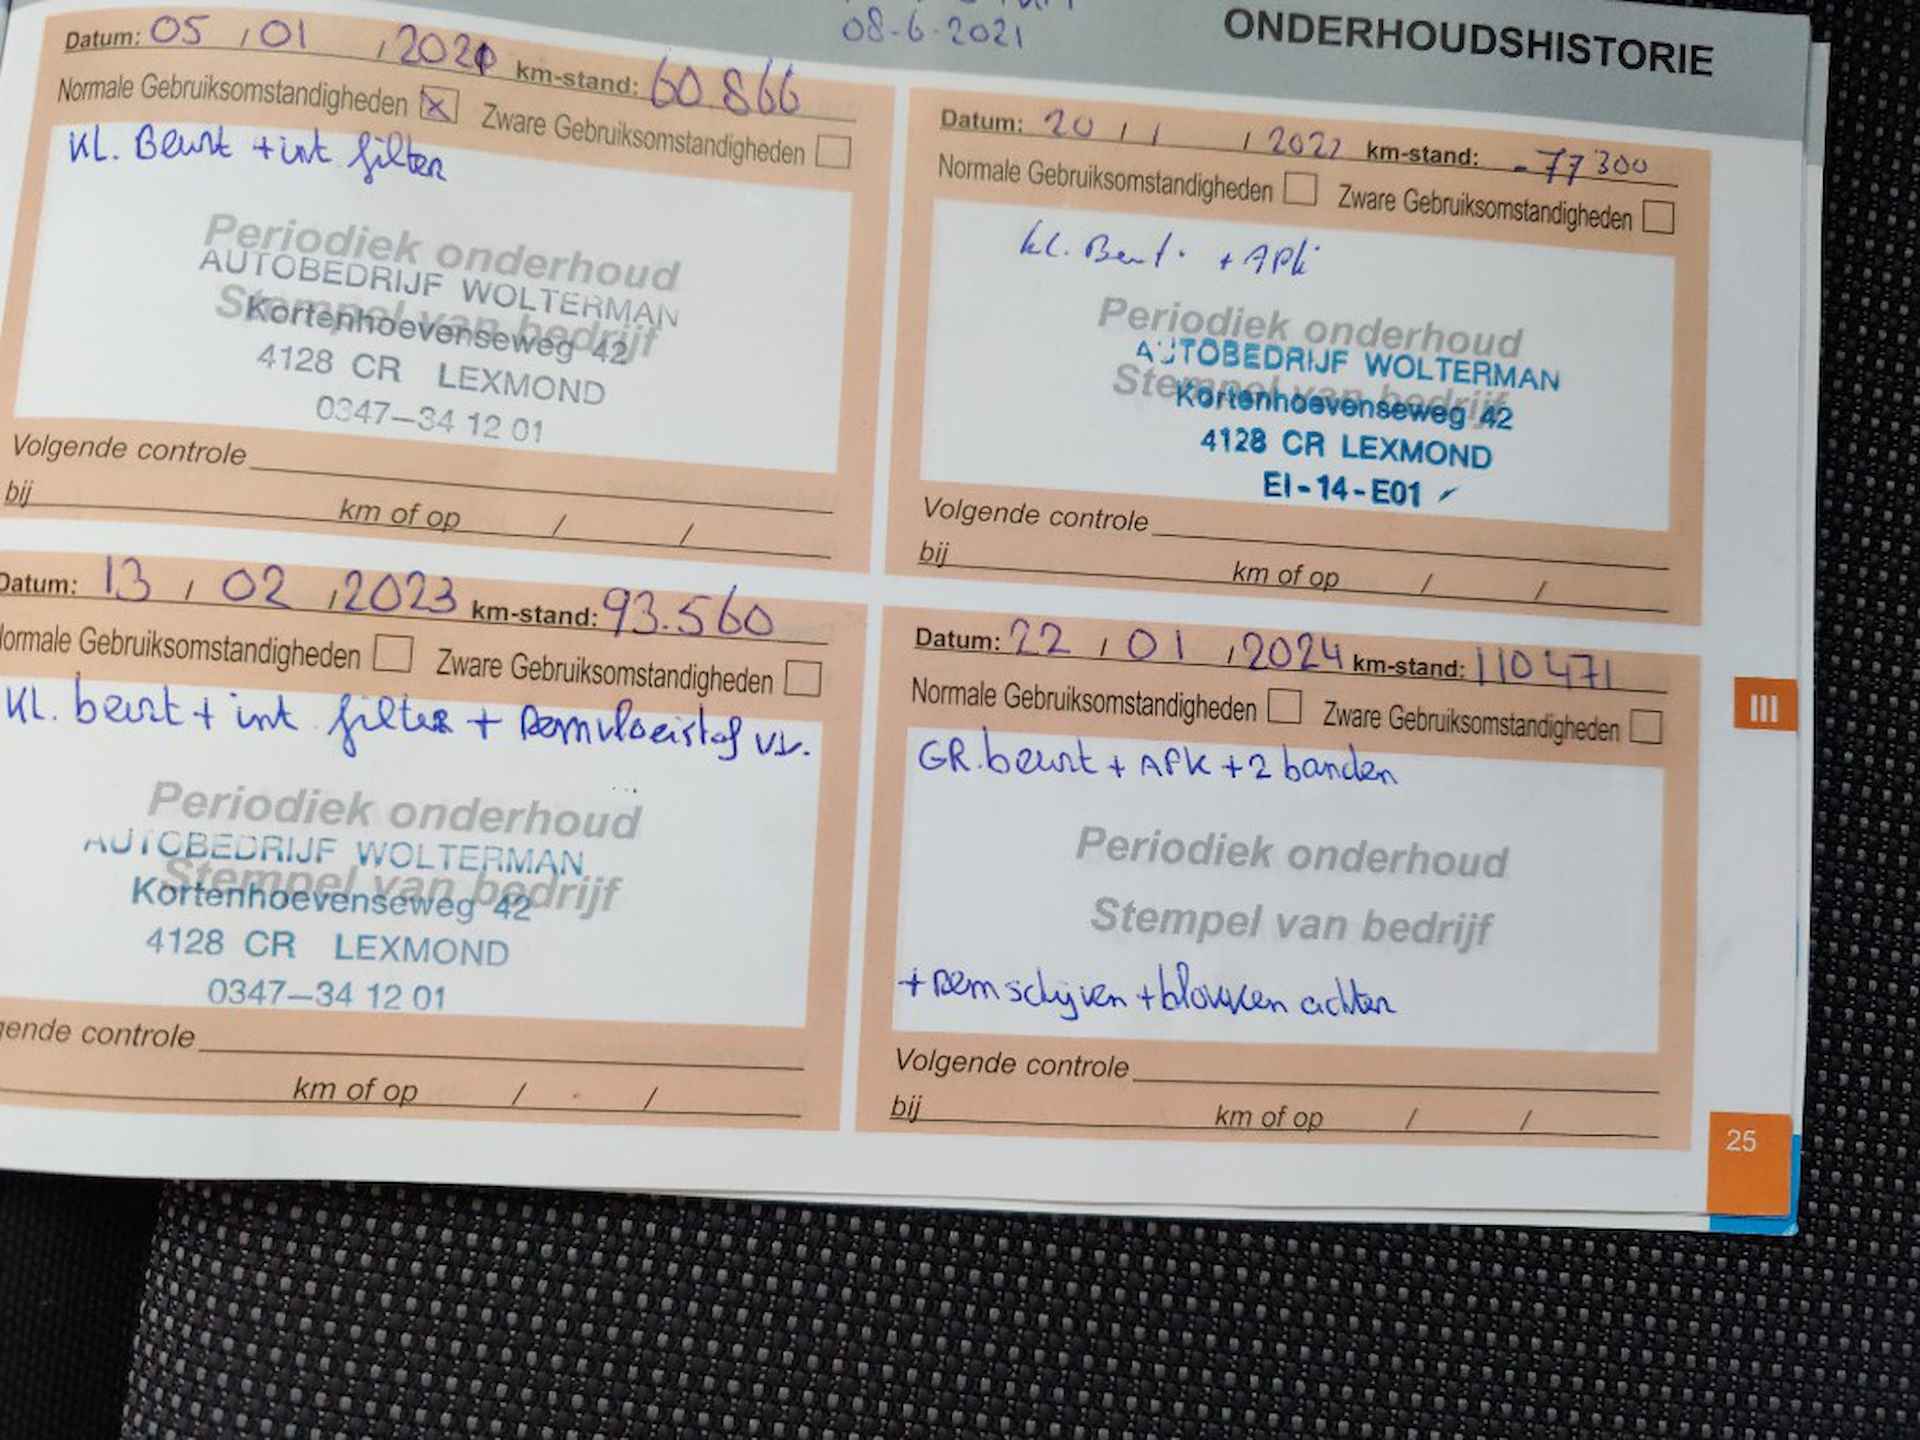 08-6-2021
ONDERHOUDSHISTORIE
Datum: 05 / 01 / 2021 km-stand: 60.866
Normale Gebruiksomstandigheden x Zware Gebruiksomstandigheden
KL. Beurt + int filter
Periodiek onderhoud
AUTOBEDRIJF WOLTERMAN
Stempel van bedrijf
Kortenhoevenseweg 42
4128 CR LEXMOND
0347-34 12 01
Volgende controle
bij km of op / /
Datum: 20 / 1 / 2022 km-stand: -77300
Normale Gebruiksomstandigheden Zware Gebruiksomstandigheden
kl. Beurt. + APk
Periodiek onderhoud
AUTOBEDRIJF WOLTERMAN
Stempel van bedrijf
Kortenhoevenseweg 42
4128 CR LEXMOND
EI-14-E01
Volgende controle
bij km of op / /
Datum: 13 / 02 / 2023 km-stand: 93.560
ormale Gebruiksomstandigheden Zware Gebruiksomstandigheden
KL. beurt + int filter + Remvloeistof vv.
Periodiek onderhoud
AUTOBEDRIJF WOLTERMAN
Stempel van bedrijf
Kortenhoevenseweg 42
4128 CR LEXMOND
0347-34 12 01
gende controle
km of op / /
Datum: 22 / 01 / 2024 km-stand: 110471
Normale Gebruiksomstandigheden Zware Gebruiksomstandigheden
GR. beurt + APK + 2 banden
Periodiek onderhoud
Stempel van bedrijf
+ Remschijven + blokken achter
Volgende controle
bij km of op / /
III
25